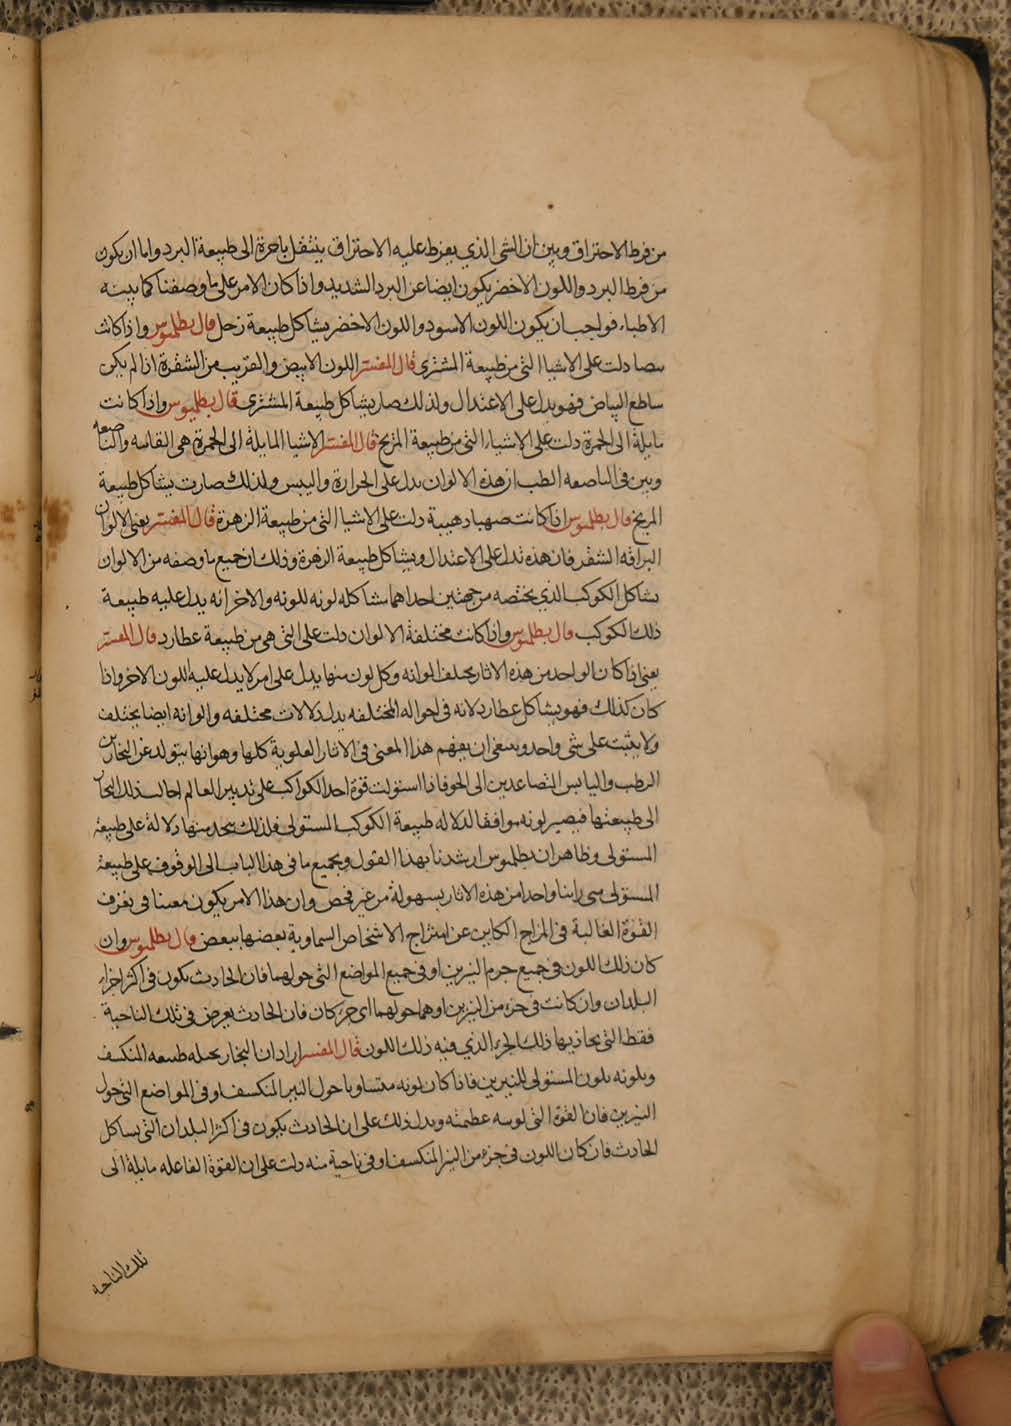 من فرط الاحتراق وبين ان الشى الذي يفرط عليه الاحتراق ينتقل باخرة الى طبيعة البرد واما ان يكون
من فرط البرد واللون الاخضر يكون ايضا عن البرد الشديد واذا كان الامر على ما وصفنا كما بينه
الاطباء فواجب ان يكون اللون الاسود واللون الاخضر يشاكل طبيعة زحل قال بطلميوس واذا كانت
بيضا دلت على الاشيا التي من طبيعة المشتري قال المفسر اللون الابيض والقريب من الشقرة اذا لم يكن
ساطع البياض فهو يدل على الاعتدال ولذلك صار يشاكل طبيعة المشتري قال بطلميوس واذا كانت
مايلة الى الحمرة دلت على الاشياء التي من طبيعة المريخ قال المفسر الاشيا المايلة الى الحمرة هى القانيه والناصعه
وبين في الناصعه الطب ان هذه الالوان يدل على الحرارة واليبس ولذلك صارت يشاكل طبيعة
المريخ قال بطلميوس اذا كانت صهبا ذهبية دلت على الاشيا التي من طبيعة الزهرة قال المفسر يعنى الالوان
البراقه الشقر فان هذه تدل على الاعتدال ويشاكل طبيعة الزهرة وذلك ان جميع ما وصفه من الالوان
يشاكل الكوكب الذي يختصه من جهتين احداهما مشاكله لونه للونه والاخر انه يدل عليه طبيعة
ذلك الكوكب قال بطلميوس واذا كانت مختلفة الالوان دلت على التي هى من طبيعة عطارد قال المفسر
يعنى اذا كان الواحد من هذه الاثار يختلف الوانه وكل لون منها يدل على امر لا يدل عليه اللون الاخر واذا
كان كذلك فهو يشاكل عطارد لانه في احواله المختلفه يدل دلالات مختلفه والوانه ايضا يختلف
ولا يثبت على شى واحد وينبغى ان يفهم هذا المعنى في الاثار العلوية كلها وهو انها يتولد عن البخارين
الرطب واليابس المتصاعدين الى الجو فاذا استولت قوة احد الكواكب على تدبير العالم احالت ذلك البخار
الى طبيعتها فيصير لونه موافقا لدلاله طبيعة الكوكب المستولى فلذلك يتخذ منها دلالة على طبيعة
المستولى وظاهر ان بطلميوس ارشدنا بهذا القول وبجميع ما في هذا الباب الى الوقوف على طبيعة
المستولى متى راينا واحدا من هذه الاثار بسهولة من غير فحص وان هذا الامر يكون معينا في تعرف
القوة الغالبة في المزاج الكاين عن امتزاج الاشخاص السماوية بعضها ببعض قال بطلميوس وان
كان ذلك اللون في جميع جرم النيرين او في جميع المواضع التي حولهما فان الحادث يكون في اكثر اجزاء
البلدان وان كانت في جزء من النيرين او مما حولهما اى جزء كان فان الحادث يعرض في تلك الناحية
فقط التي يحاذيها ذلك الجزء الذي فيه ذلك اللون قال المفسر اراد ان البخار يحيله طبيعه المنكسف
ويلونه بلون المستولى للنيرين فاذا كان لونه متساويا حول النير المنكسف او في المواضع التي حول
النيرين فان القوة التي لونته عظيمه ويدل ذلك على ان الحادث يكون في اكثر البلدان التي يشاكل
الحادث فان كان اللون في جزء من النير المنكسف او في ناحية منه دلت على ان القوة الفاعله مايلة الى
تلك الناحيه